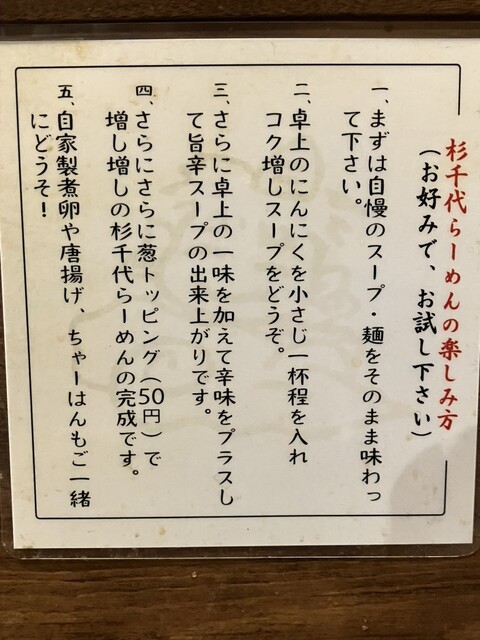 杉千代らーめんの楽しみ方
(お好みで、お試し下さい)
一、まずは自慢のスープ・麺をそのまま味わっ
て下さい。
二、卓上のにんにくを小さじ一杯程を入れ
コク増しスープをどうぞ。
三、さらに卓上の一味を加えて辛味をプラスし
て旨辛スープの出来上がりです。
四、さらにさらに葱トッピング(50円)で
増し増しの杉千代らーめんの完成です。
五、自家製煮卵や唐揚げ、ちゃーはんもご一緒
にどうぞ!